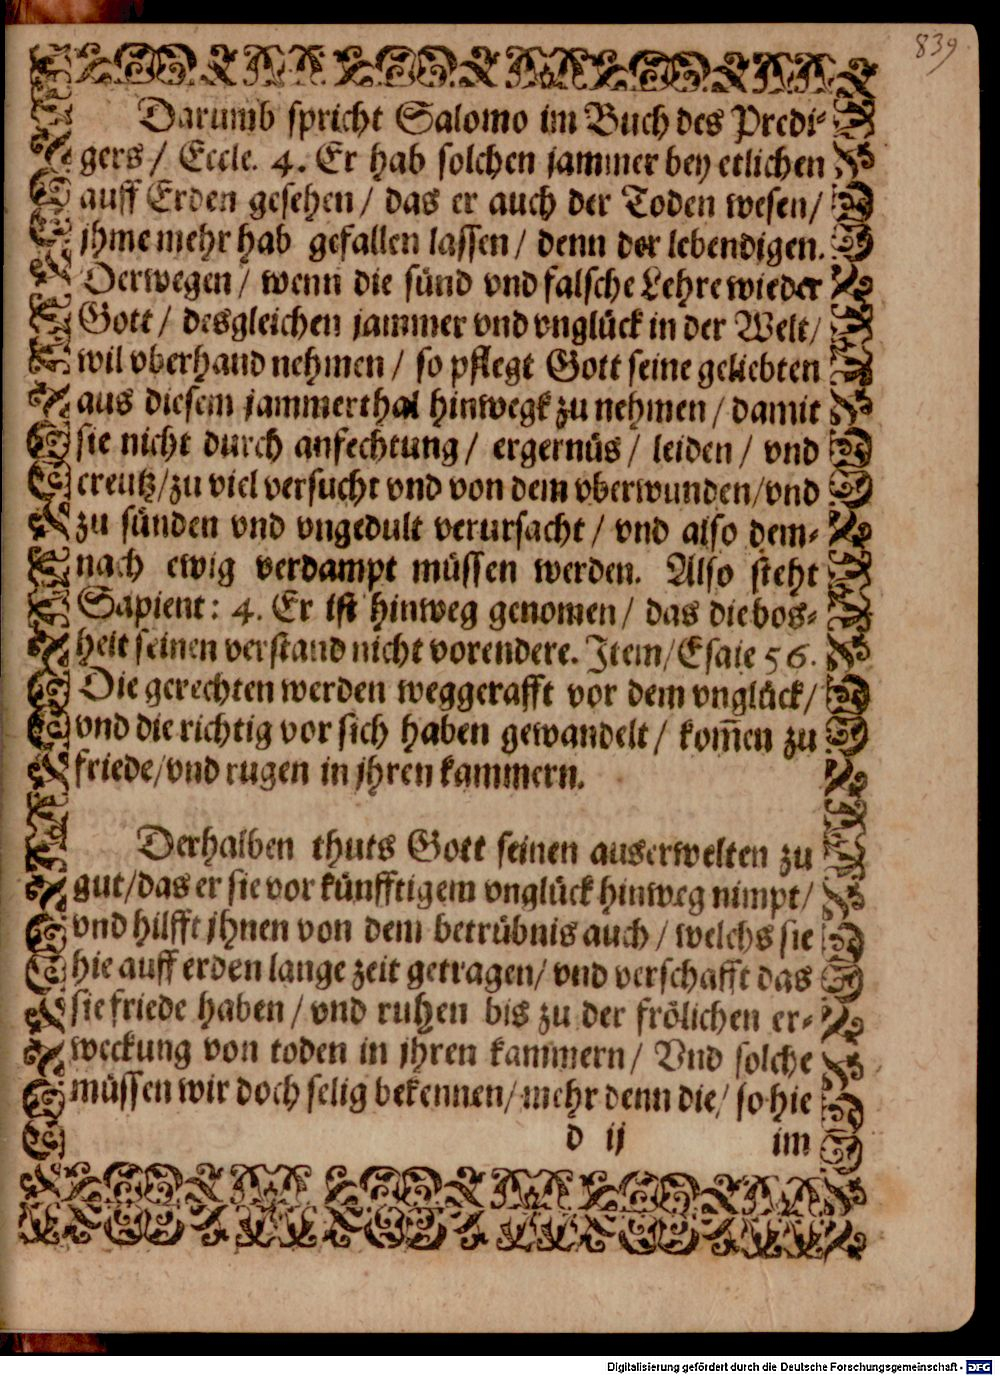 839.
Darumb spricht Salomo im Buch des Predi-
gers / Eccle. 4. Er hab solchen jammer bey etlichen
auff Erden gesehen / das er auch der Toden wesen /
jhme mehr hab gefallen lassen / denn der lebendigen.
Derwegen / wenn die sünd vnd falsche Lehre wieder
Gott / desgleichen jammer vnd vnglück in der Welt /
wil vberhand nehmen / so pflegt Gott seine geliebten
aus diesem jammerthal hinwegk zu nehmen / damit
sie nicht durch anfechtung / ergernüs / leiden / vnd
creutz / zu viel versucht vnd von dem vberwunden / vnd
zu sünden vnd vngedult verursacht / vnd also dem-
nach ewig verdampt müssen werden. Also steht
Sapient: 4. Er ist hinweg genomen / das die bos-
heit seinen verstand nicht vorendere. Item / Esaie 56.
Die gerechten werden weggerafft vor dem vnglück /
vnd die richtig vor sich haben gewandelt / kom̃en zu
friede / vnd rugen in jhren kammern.
Derhalben thuts Gott seinen auserwelten zu
gut / das er sie vor künfftigem vnglück hinweg nimpt /
vnd hilfft jhnen von dem betrübnis auch / welchs sie
hie auff erden lange zeit getragen / vnd verschafft das
sie friede haben / vnd ruhen bis zu der frölichen er-
weckung von toden in jhren kammern / Vnd solche
müssen wir doch selig bekennen / mehr denn die / so hie
d ij im
Digitalisierung gefördert durch die Deutsche Forschungsgemeinschaft - DFG